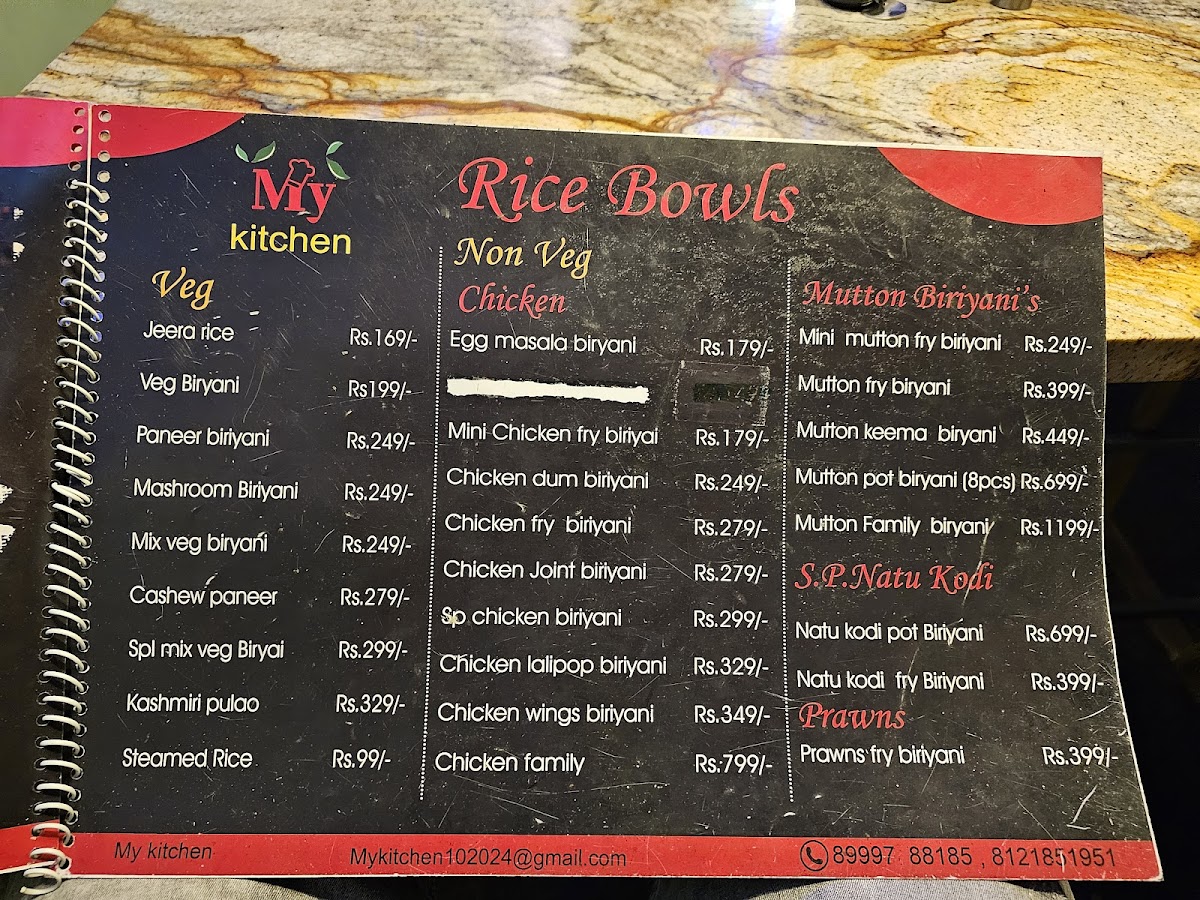 My
kitchen
Rice Bowls
Veg
Jeera rice Rs.169/-
Veg Biryani Rs199/-
Paneer biriyani Rs.249/-
Mashroom Biriyani Rs.249/-
Mix veg biryani Rs.249/-
Cashew paneer Rs.279/-
Spl mix veg Biryai Rs.299/-
Kashmiri pulao Rs.329/-
Steamed Rice Rs.99/-
Non Veg
Chicken
Egg masala biryani Rs.179/-
Mini Chicken fry biriyai Rs.179/-
Chicken dum biriyani Rs.249/-
Chicken fry biriyani Rs.279/-
Chicken Joint biriyani Rs.279/-
Sp chicken biriyani Rs.299/-
Chicken lalipop biriyani Rs.329/-
Chicken wings biriyani Rs.349/-
Chicken family Rs.799/-
Mutton Biriyani's
Mini mutton fry biriyani Rs.249/-
Mutton fry biryani Rs.399/-
Mutton keema biryani Rs.449/-
Mutton pot biryani (8pcs) Rs.699/-
Mutton Family biryani Rs.1199/-
S.P.Natu Kodi
Natu kodi pot Biriyani Rs.699/-
Natu kodi fry Biriyani Rs.399/-
Prawns
Prawns fry biriyani Rs.399/-
My kitchen Mykitchen102024@gmail.com 89997 88185 , 8121851951